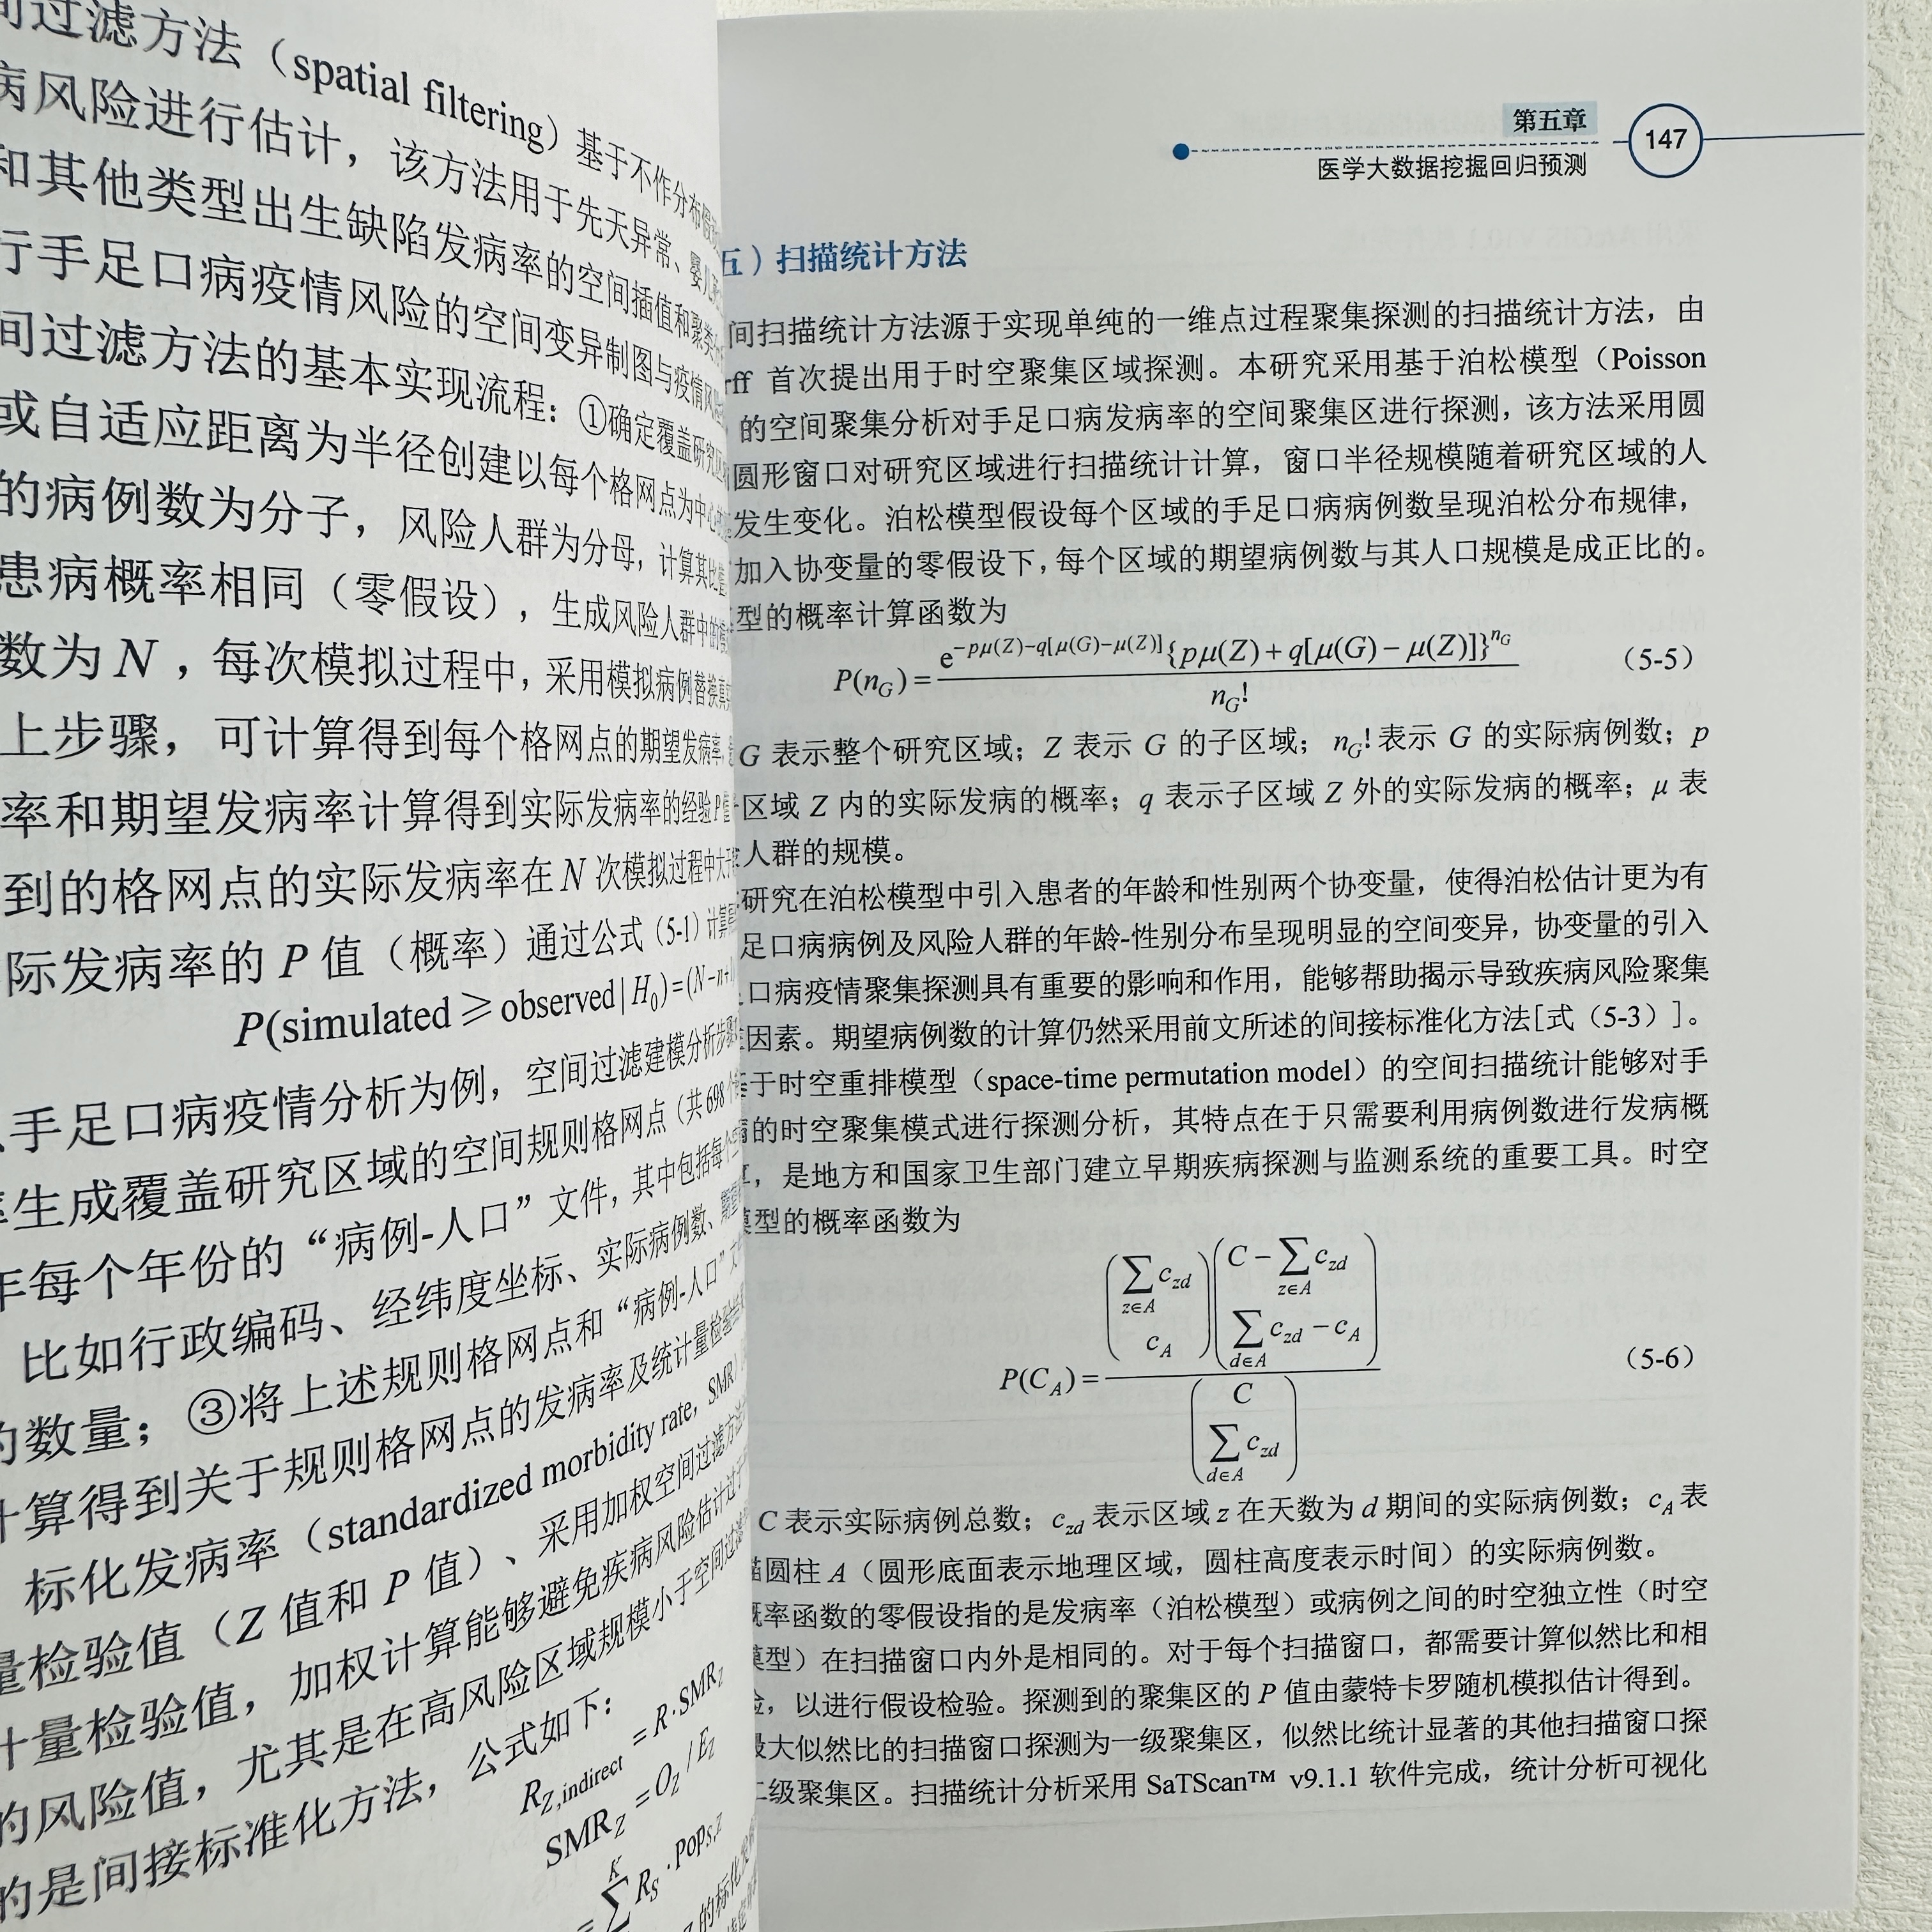 间过滤方法（spatial filtering）基于不作分布假
病风险进行估计，该方法用于先天异常、婴儿
和其他类型出生缺陷发病率的空间插值和聚类
行手足口病疫情风险的空间变异制图与疫情风
间过滤方法的基本实现流程：①确定覆盖研究区
或自适应距离为半径创建以每个格网点为中心
的病例数为分子，风险人群为分母，计算其比
患病概率相同（零假设），生成风险人群中的
数为 N ，每次模拟过程中，采用模拟病例替换真
上步骤，可计算得到每个格网点的期望发病率，
率和期望发病率计算得到实际发病率的经验 P 值
到的格网点的实际发病率在 N 次模拟过程中大于
际发病率的 P 值（概率）通过公式（5-1）计算
P(simulated ⩾ observed | H₀)=(N−n+1
手足口病疫情分析为例，空间过滤建模分析步骤
生成覆盖研究区域的空间规则格网点（共 698 个
年每个年份的“病例-人口”文件，其中包括每个
比如行政编码、经纬度坐标、实际病例数、期望
的数量；③将上述规则格网点和“病例-人口”文
计算得到关于规则格网点的发病率及统计量检验
标化发病率（standardized morbidity rate，SMR）
量检验值（Z 值和 P 值）、采用加权空间过滤方法
计量检验值，加权计算能够避免疾病风险估计过
的风险值，尤其是在高风险区域规模小于空间过滤
的是间接标准化方法，公式如下：
R_{Z,indirect} = R·SMR_Z
SMR_Z = O_Z / E_Z
= ∑^K R_S · Pop_{S,Z}
的标化发
第五章
147
医学大数据挖掘回归预测
五）扫描统计方法
间扫描统计方法源于实现单纯的一维点过程聚集探测的扫描统计方法，由
rff 首次提出用于时空聚集区域探测。本研究采用基于泊松模型（Poisson
的空间聚集分析对手足口病发病率的空间聚集区进行探测，该方法采用圆
圆形窗口对研究区域进行扫描统计计算，窗口半径规模随着研究区域的人
发生变化。泊松模型假设每个区域的手足口病病例数呈现泊松分布规律，
加入协变量的零假设下，每个区域的期望病例数与其人口规模是成正比的。
型的概率计算函数为
P(n_G) = e^{−pμ(Z)−q[μ(G)−μ(Z)]}{pμ(Z)+q[μ(G)−μ(Z)]}^{n_G} / n_G! （5-5）
G 表示整个研究区域；Z 表示 G 的子区域；n_G!表示 G 的实际病例数；p
区域 Z 内的实际发病的概率；q 表示子区域 Z 外的实际发病的概率；μ 表
人群的规模。
研究在泊松模型中引入患者的年龄和性别两个协变量，使得泊松估计更为有
足口病病例及风险人群的年龄-性别分布呈现明显的空间变异，协变量的引入
口病疫情聚集探测具有重要的影响和作用，能够帮助揭示导致疾病风险聚集
因素。期望病例数的计算仍然采用前文所述的间接标准化方法[式（5-3）]。
基于时空重排模型（space-time permutation model）的空间扫描统计能够对手
病的时空聚集模式进行探测分析，其特点在于只需要利用病例数进行发病概
算，是地方和国家卫生部门建立早期疾病探测与监测系统的重要工具。时空
模型的概率函数为
P(C_A) = (∑_{z∈A} c_{zd} c_A)(C − ∑_{z∈A} c_{zd} ∑_{d∈A} c_{zd} − c_A) / (C ∑_{d∈A} c_{zd}) （5-6）
C 表示实际病例总数；c_{zd} 表示区域 z 在天数为 d 期间的实际病例数；c_A 表
描圆柱 A（圆形底面表示地理区域，圆柱高度表示时间）的实际病例数。
概率函数的零假设指的是发病率（泊松模型）或病例之间的时空独立性（时空
模型）在扫描窗口内外是相同的。对于每个扫描窗口，都需要计算似然比和相
验，以进行假设检验。探测到的聚集区的 P 值由蒙特卡罗随机模拟估计得到。
最大似然比的扫描窗口探测为一级聚集区，似然比统计显著的其他扫描窗口探
二级聚集区。扫描统计分析采用 SaTScan™ v9.1.1 软件完成，统计分析可视化